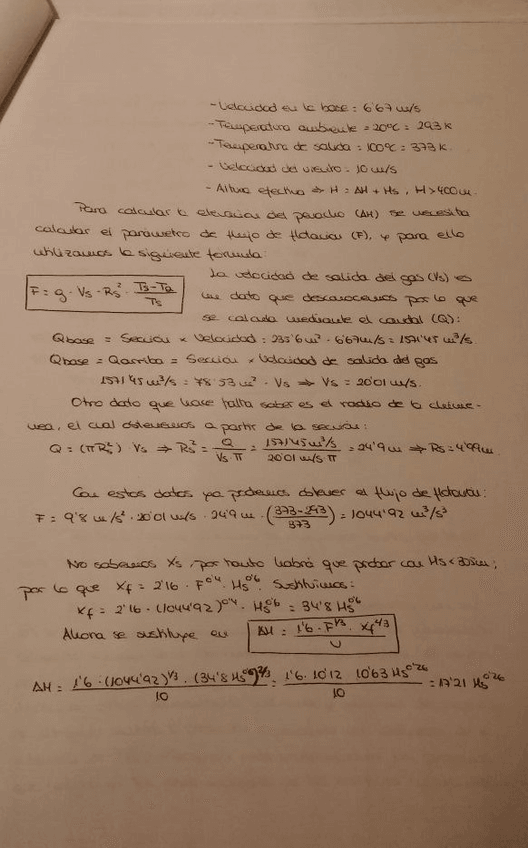 - Velocidad en la base = 6'67 m/s
- Temperatura ambiente = 20ºC = 293 K
- Temperatura de salida = 100ºC = 373 K
- Velocidad del viento = 10 m/s
- Altura efectiva ⇒ H = ΔH + Hs, H > 400 m.
Para calcular la elevación del penacho (ΔH) se necesita
calcular el parámetro de flujo de flotación (F), y para ello
utilizamos la siguiente fórmula:
F = g · Vs · Rs² · (Ts - Ta)/Ts
La velocidad de salida del gas (Vs) es
un dato que desconocemos por lo que
se calcula mediante el caudal (Q):
Qbase = Sección × Velocidad = 235'6 m² · 6'67 m/s = 1571'45 m³/s
Qbase = Qarriba = Sección × Velocidad de salida del gas
1571'45 m³/s = 78'53 m² · Vs ⇒ Vs = 20'01 m/s.
Otro dato que hace falta saber es el radio de la chime-
nea, el cual obtenemos a partir de la sección:
Q = (πRs²) Vs ⇒ Rs² = Q/(Vs·π) = 1571'45 m³/s/(20'01 m/s·π) = 24'9 m ⇒ Rs = 4'99 m.
Con estos datos ya podemos obtener el flujo de flotación:
F = 9'8 m/s² · 20'01 m/s · 24'9 m · ((373-293)/373) = 1044'92 m³/s³
No sabemos Xs, por tanto habrá que probar con Hs < 305m;
por lo que Xf = 2'16 · F^0'4 · Hs^0'6. Sustituimos:
Xf = 2'16 · (1044'92)^0'4 · Hs^0'6 = 34'8 Hs^0'6
Ahora se sustituye en
ΔH = 1'6 · F^1/3 · Xf^2/3 / U
ΔH = 1'6 · (1044'92)^1/3 · (34'8 Hs^0'6)^2/3 / 10 = 1'6 · 10'12 10'63 Hs^0'26 / 10 = 17'21 Hs^0'26